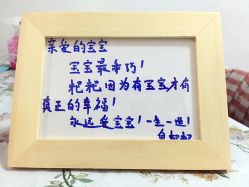 亲爱的宝宝
宝宝最乖巧!
粑粑因为有宝宝才有
真正的幸福!
永远爱宝宝!一生一世!